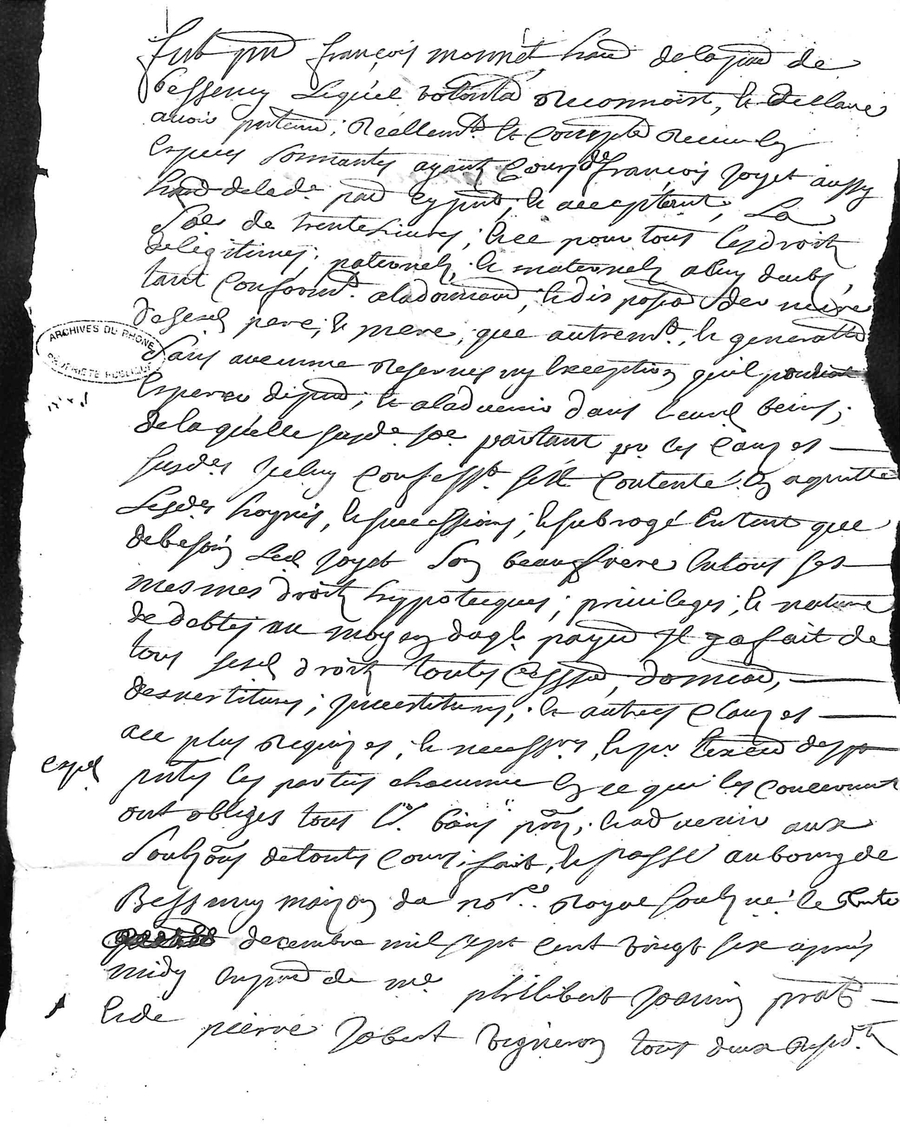 fut pnt françois monnet, hand de la par de
bessenay Lequel volontd reconnoist, et declare
avoir presentem reellemt et compté receu en
especes sonnantes ayant cours de françois joyet aussy
hand de lade par cy pnt, et acceptant, La
soe de trente livres, et ce pour tous les droits
de legitimes, paternels, et maternels a luy deubs,
tant conformt. a la donnaon, et disposaon derniere
de ses pere, et mere, que autremt. et generallt
sans aucunne reserves ny exception qu'il
esperer dispnt, et a ladvenir dans leurs biens,
de laquelle susde soe partant pr les causes
susdes jceluy confesst. s'est contenté en a quitté
Lesdes hoyries, et successions, et subrogé en tant que
de besoin Led joyet son beaufrere en tous ses
mesmes droits hyppotecques, privileges, et nature
de debtes au moyen du payt Jl a fait de
tous sesd droits toutes, demions,
desvestitures, jnvestitures, et autres clauzes
a ce plus requizes, et necessres, et pr lexecu des
pntes les parties chacunne en ce qui les concernent
ont obligés tous Lrs. biens pnts, et advenir aux
soubmons de touts cours, fait, et passé au bourg de
Bessenay maizon du nore. royal soubsné le trente
decembre mil sept cent vingt six apres
midy en pnce de me philibert joannin prat
et de pierre jobert vigneron tout deux
expd
ARCHIVES DU RHONE
PROPRIETE PUBLIQUE